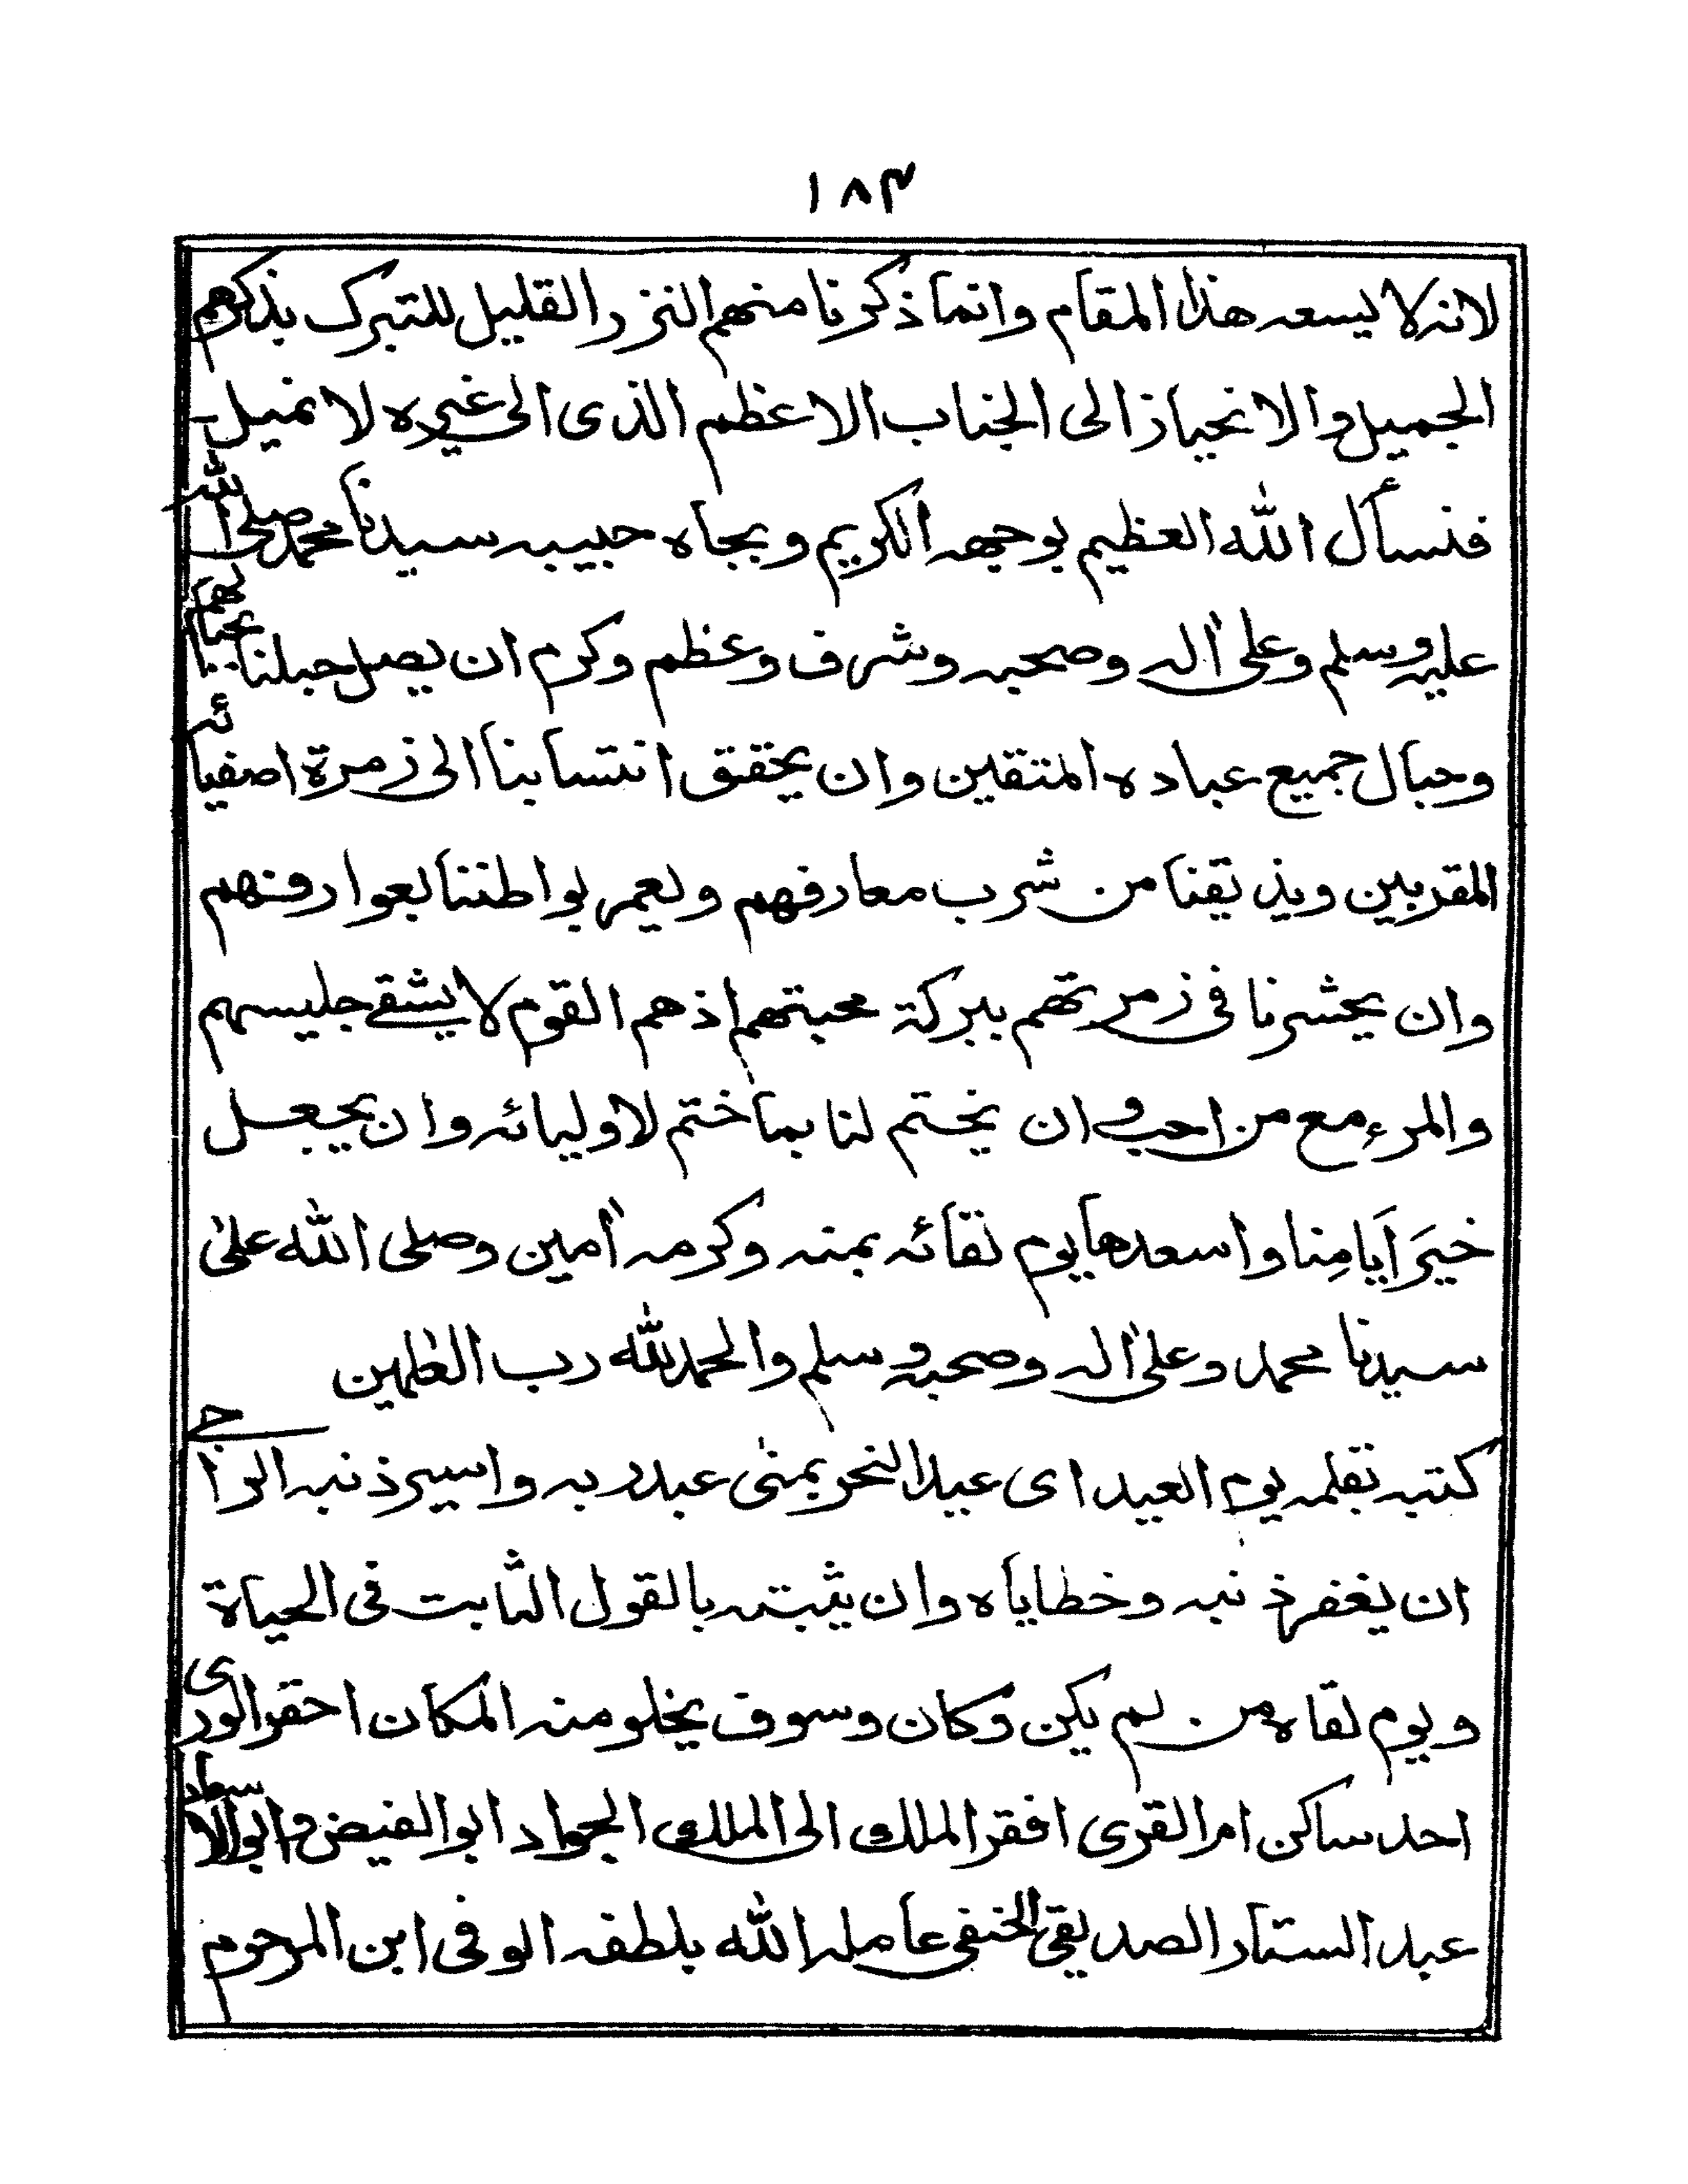 ١٨٣
لانه لا يسعه هذا المقام وانما ذكرنا منهم النزر القليل للتبرك بذكرهم
الجميل والانحياز الى الجناب الاعظم الذى الى غيره لا نميل
فنسأل الله العظيم بوجهه الكريم وبجاه حبيبه سيدنا محمد صلى الله
عليه وسلم وعلى اٰله وصحبه وشرف وعظم وكرم ان يصل حبلنا بحبالهم
وحبال جميع عباده المتقين وان يحقق انتسابنا الى زمرة اصفيائه
المقربين ويذيقنا من شرب معارفهم ويعمر بواطننا بعوارفهم
وان يحشرنا فى زمرتهم ببركة محبتهم اذ هم القوم لا يشقى جليسهم
والمرء مع من احب وان يختم لنا بما ختم لاوليائه وان يجعل
خيرَ اَيامِنا واسعدها يوم لقائه بمنه وكرمه اٰمين وصلى الله على
سيدنا محمد وعلى اٰله وصحبه وسلم والحمد لله رب العٰلمين
كتبه بقلمه يوم العيد اى عيد النحر بمنى عبد ربه واسير ذنبه الراجى
ان يغفر ذنبه وخطاياه وان يثبته بالقول الثابت فى الحياة
ويوم لقاه من لم يكن وكان وسوف يخلو منه المكان احقر الورى
احد ساكن ام القرى افقر الملك الى الملك الجواد ابو الفيض وابو الاسعاد
عبد الستار الصديقى الحنفى عامله الله بلطفه الوفى ابن المرحوم